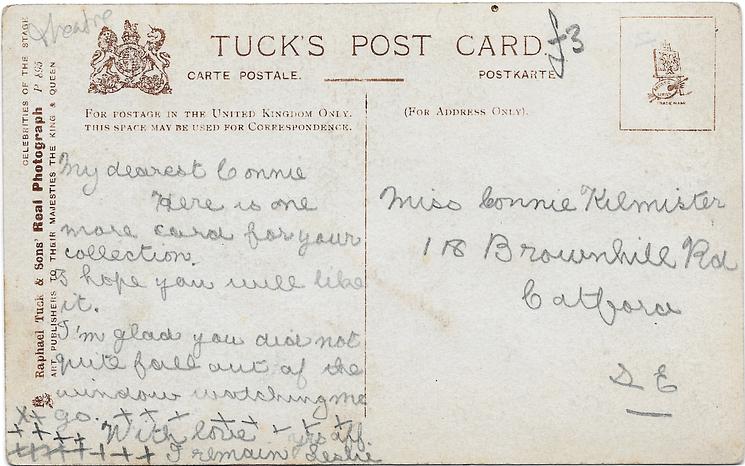 Theatre
£3
TUCK'S POST CARD.
CARTE POSTALE.
POSTKARTE
FOR POSTAGE IN THE UNITED KINGDOM ONLY.
THIS SPACE MAY BE USED FOR CORRESPONDENCE.
(FOR ADDRESS ONLY).
TRADE MARK
CELEBRITIES OF THE STAGE
Raphael Tuck & Sons' Real Photograph P 805
ART PUBLISHERS TO THEIR MAJESTIES THE KING & QUEEN
My dearest Connie
Here is one
more card for your
collection.
I hope you will like
it.
I'm glad you did not
quite fall out of the
window watching me
go. x x x x x x x
x x x x With love yrs aff.
x x x x x x x x I remain Leslie
Miss Connie Kilmister
118 Brownhill Rd
Catford
S E